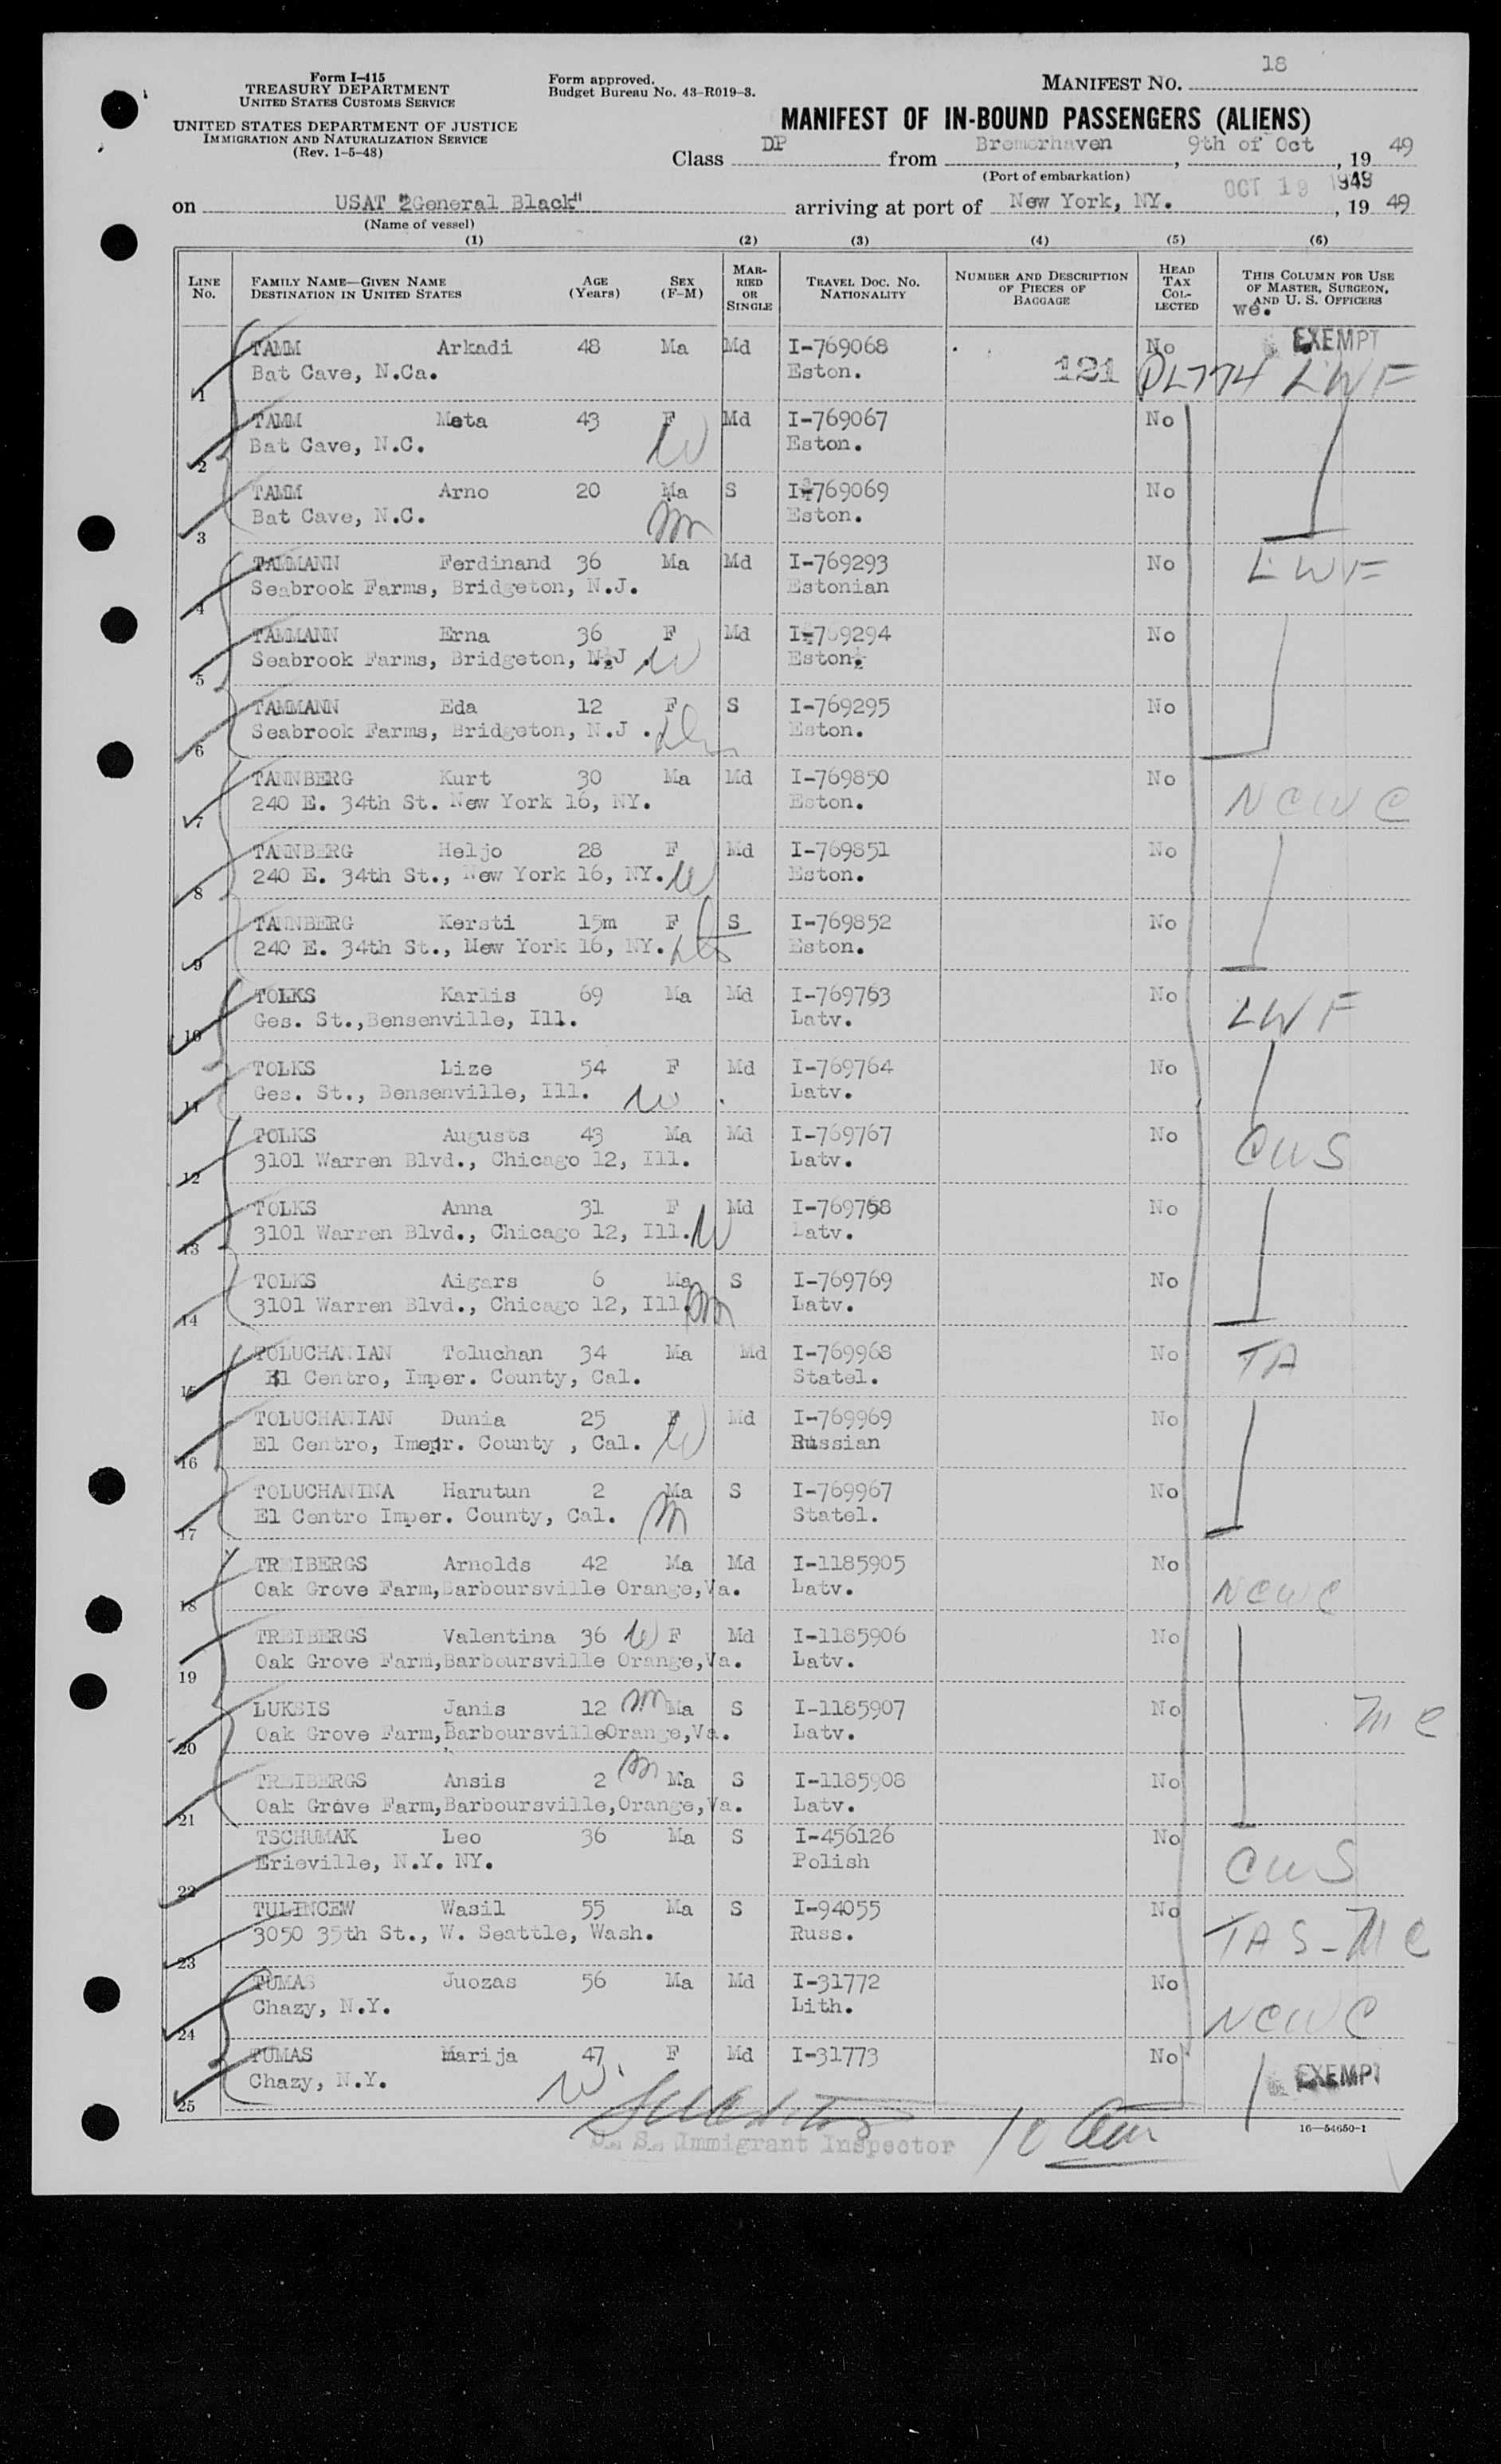 18
Form I-415
TREASURY DEPARTMENT
UNITED STATES CUSTOMS SERVICE
UNITED STATES DEPARTMENT OF JUSTICE
IMMIGRATION AND NATURALIZATION SERVICE
(Rev. 1-5-48)
Form approved.
Budget Bureau No. 43-R019-3.
MANIFEST NO.
MANIFEST OF IN-BOUND PASSENGERS (ALIENS)
Class DP from Bremerhaven, 9th of Oct, 19 49
(Port of embarkation)
OCT 19 1949
on USAT "General Black" arriving at port of New York, NY. , 19 49
(Name of vessel)
(1) (2) (3) (4) (5) (6)
LINE No. FAMILY NAME—GIVEN NAME DESTINATION IN UNITED STATES AGE (Years) SEX (F-M) MARRIED OR SINGLE TRAVEL DOC. No. NATIONALITY NUMBER AND DESCRIPTION OF PIECES OF BAGGAGE HEAD TAX COLLECTED THIS COLUMN FOR USE OF MASTER, SURGEON, AND U. S. OFFICERS
we.
1 TAMM Arkadi 48 Ma Md I-769068 No EXEMPT
Bat Cave, N.Ca. Eston. 121 DL774 LWF
2 TAMM Meta 43 F Md I-769067 No
Bat Cave, N.C. W Eston.
3 TAMM Arno 20 Ma S I-769069 No
Bat Cave, N.C. m Eston.
4 TAMMANN Ferdinand 36 Ma Md I-769293 No LWF
Seabrook Farms, Bridgeton, N.J. Estonian
5 TAMMANN Erna 36 F Md I-769294 No
Seabrook Farms, Bridgeton, N.J. W Eston.
6 TAMMANN Eda 12 F S I-769295 No
Seabrook Farms, Bridgeton, N.J . Eston.
7 TANNBERG Kurt 30 Ma Md I-769850 No NCWC
240 E. 34th St. New York 16, NY. Eston.
8 TANNBERG Heljo 28 F Md I-769851 No
240 E. 34th St., New York 16, NY. W Eston.
9 TANNBERG Kersti 15m F S I-769852 No
240 E. 34th St., Mew York 16, NY. Eston.
10 TOLKS Karlis 69 Ma Md I-769763 No LWF
Ges. St.,Bensenville, Ill. Latv.
11 TOLKS Lize 54 F Md I-769764 No
Ges. St., Bensenville, Ill. W Latv.
12 TOLKS Augusts 43 Ma Md I-769767 No CWS
3101 Warren Blvd., Chicago 12, Ill. Latv.
13 TOLKS Anna 31 F Md I-769768 No
3101 Warren Blvd., Chicago 12, Ill. W Latv.
14 TOLKS Aigars 6 Ma S I-769769 No
3101 Warren Blvd., Chicago 12, Ill. m Latv.
15 TOLUCHANIAN Toluchan 34 Ma Md I-769968 No TA
El Centro, Imper. County, Cal. Statel.
16 TOLUCHANIAN Dunia 25 F Md I-769969 No
El Centro, Imepr. County , Cal. W Russian
17 TOLUCHANINA Harutun 2 Ma S I-769967 No
El Centro Imper. County, Cal. m Statel.
18 TREIBERGS Arnolds 42 Ma Md I-1185905 No NCWC
Oak Grove Farm,Barboursville Orange,Va. Latv.
19 TREIBERGS Valentina 36 W F Md I-1185906 No
Oak Grove Farm,Barboursville Orange,Va. Latv.
20 LUKSIS Janis 12 m Ma S I-1185907 No MC
Oak Grove Farm,BarboursvilleOrange,Va. Latv.
21 TREIBERGS Ansis 2 m Ma S I-1185908 No
Oak Grove Farm,Barboursville,Orange,Va. Latv.
22 TSCHUMAK Leo 36 Ma S I-456126 No CWS
Erieville, N.Y. NY. Polish
23 TULINCEW Wasil 55 Ma S I-94055 No TAS-MC
3050 35th St., W. Seattle, Wash. Russ.
24 TUMAS Juozas 56 Ma Md I-31772 No NCWC
Chazy, N.Y. Lith.
25 TUMAS Marija 47 F Md I-31773 No EXEMPT
Chazy, N.Y. W
U. S. Immigrant Inspector 10 am
16—54650-1